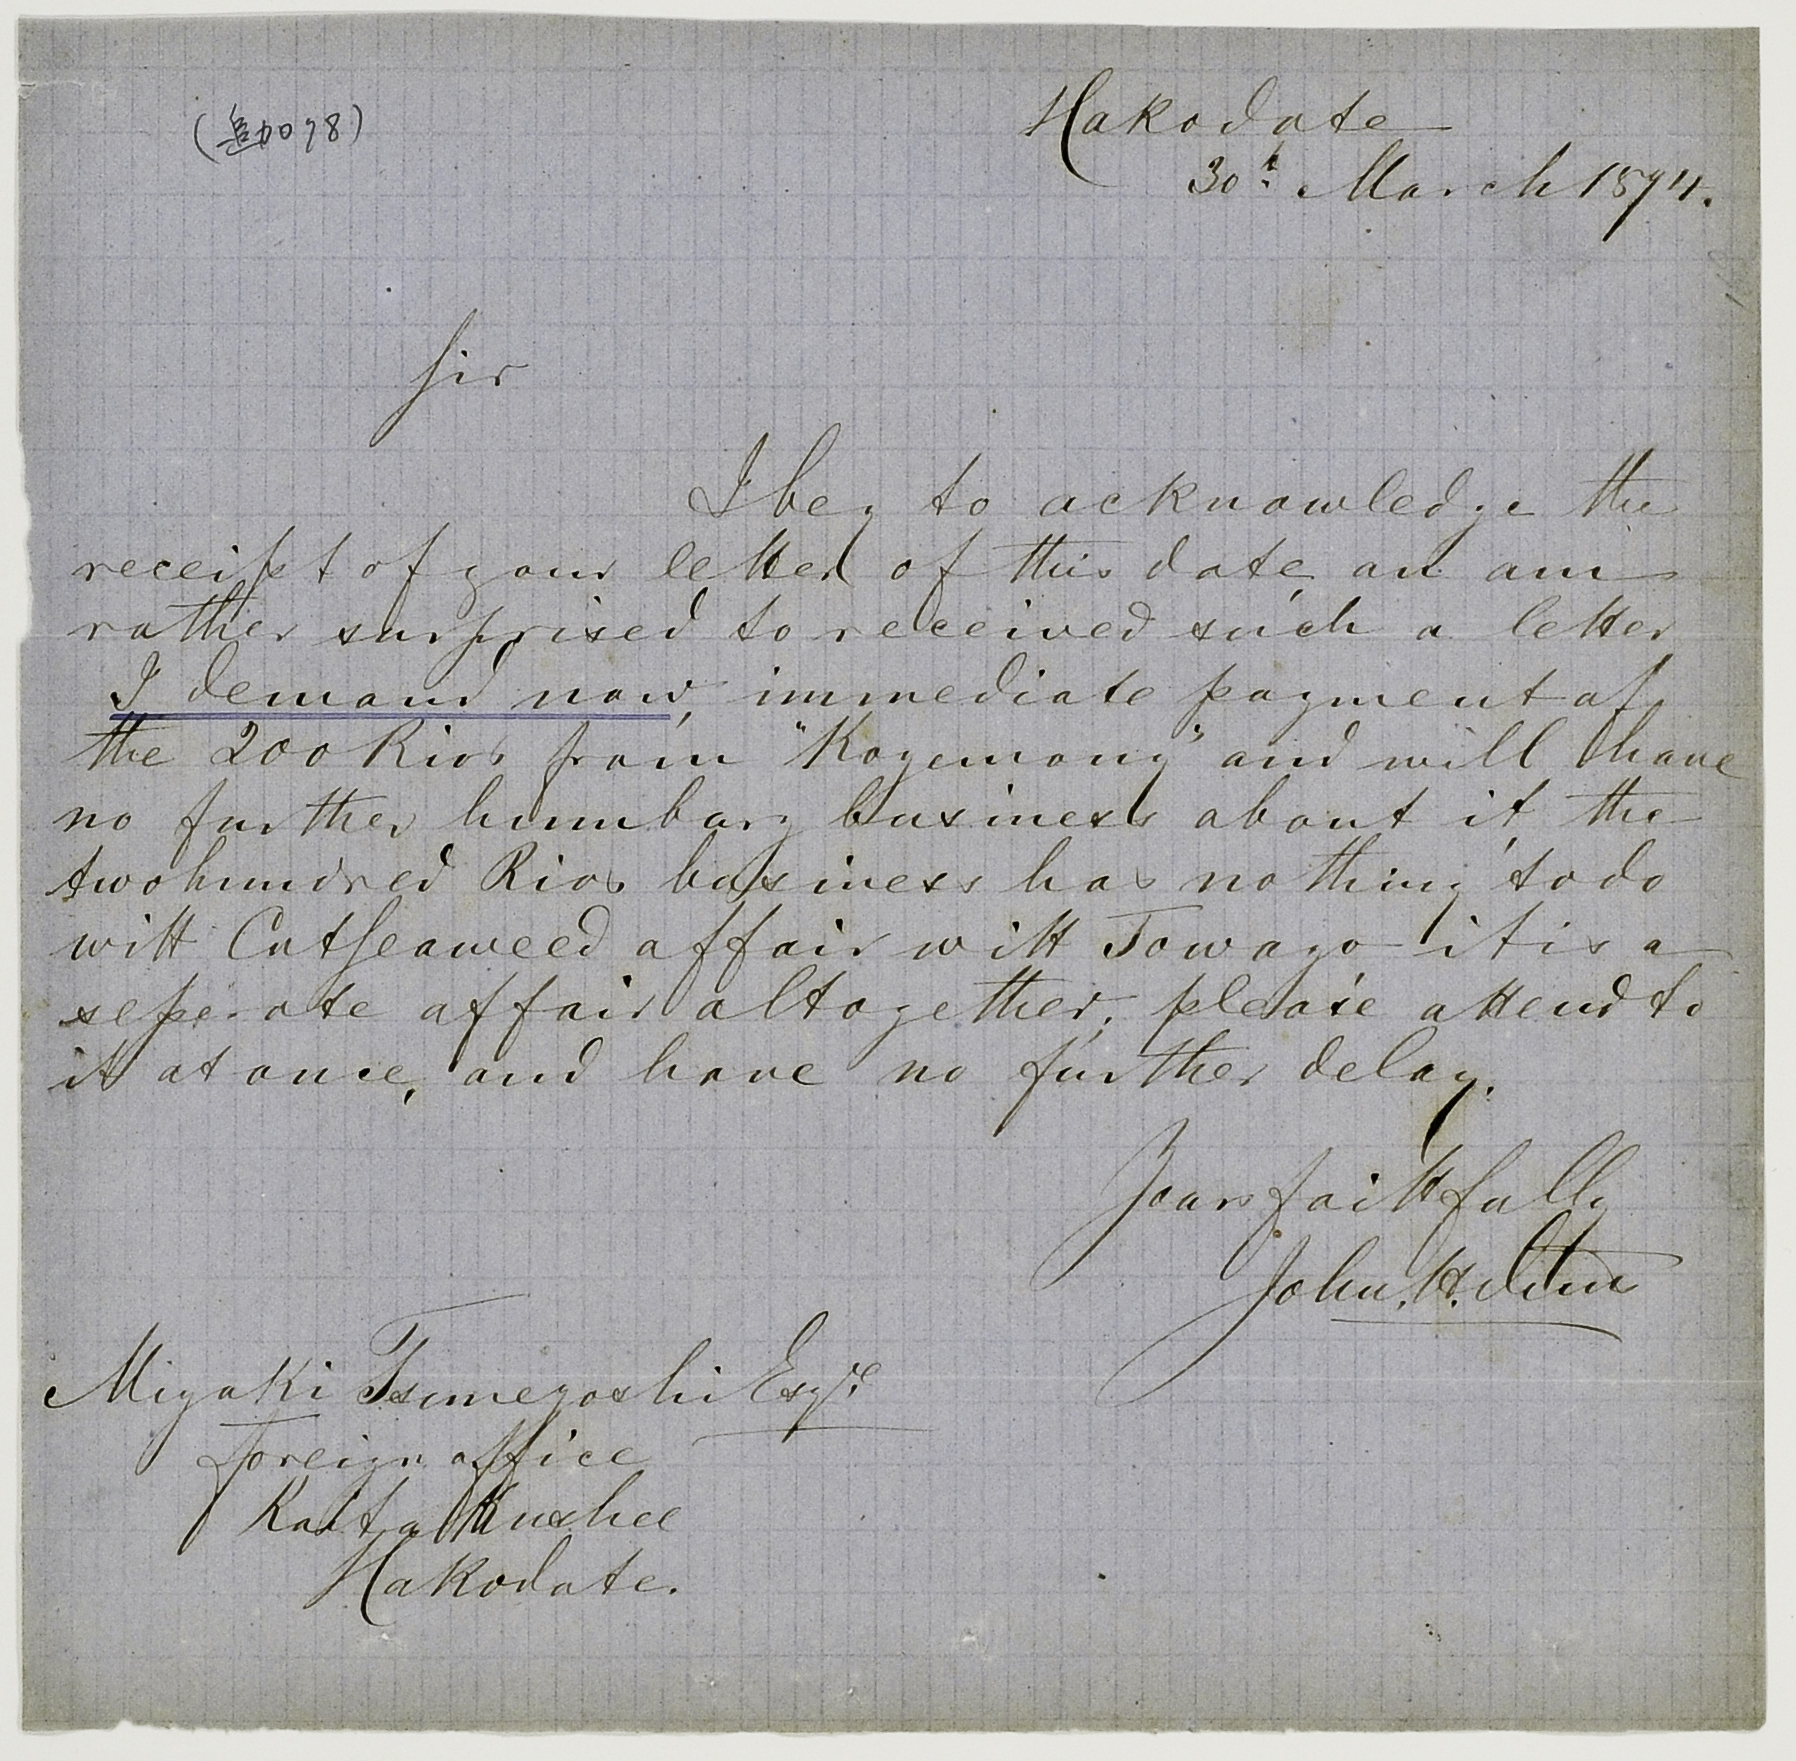 (追加98)
Hakodate
30th March 1874.
Sir
I beg to acknowledge the
receipt of your letter of this date, an am
rather surprised to received such a letter
I demand now, immediate payment of
the 200 Rios from "Kogemong" and will have
no further humbarg business about it, the
twohundred Rios business has nothing to do
with Cutseaweed affair with Towago it is a
seperate affair altogether, please attend to
it at once, and have no further delay.
Yours faithfully
John. H.
Miyaki Tsuneyoshi Esqre
Foreign office
Kaitakushee
Hakodate.